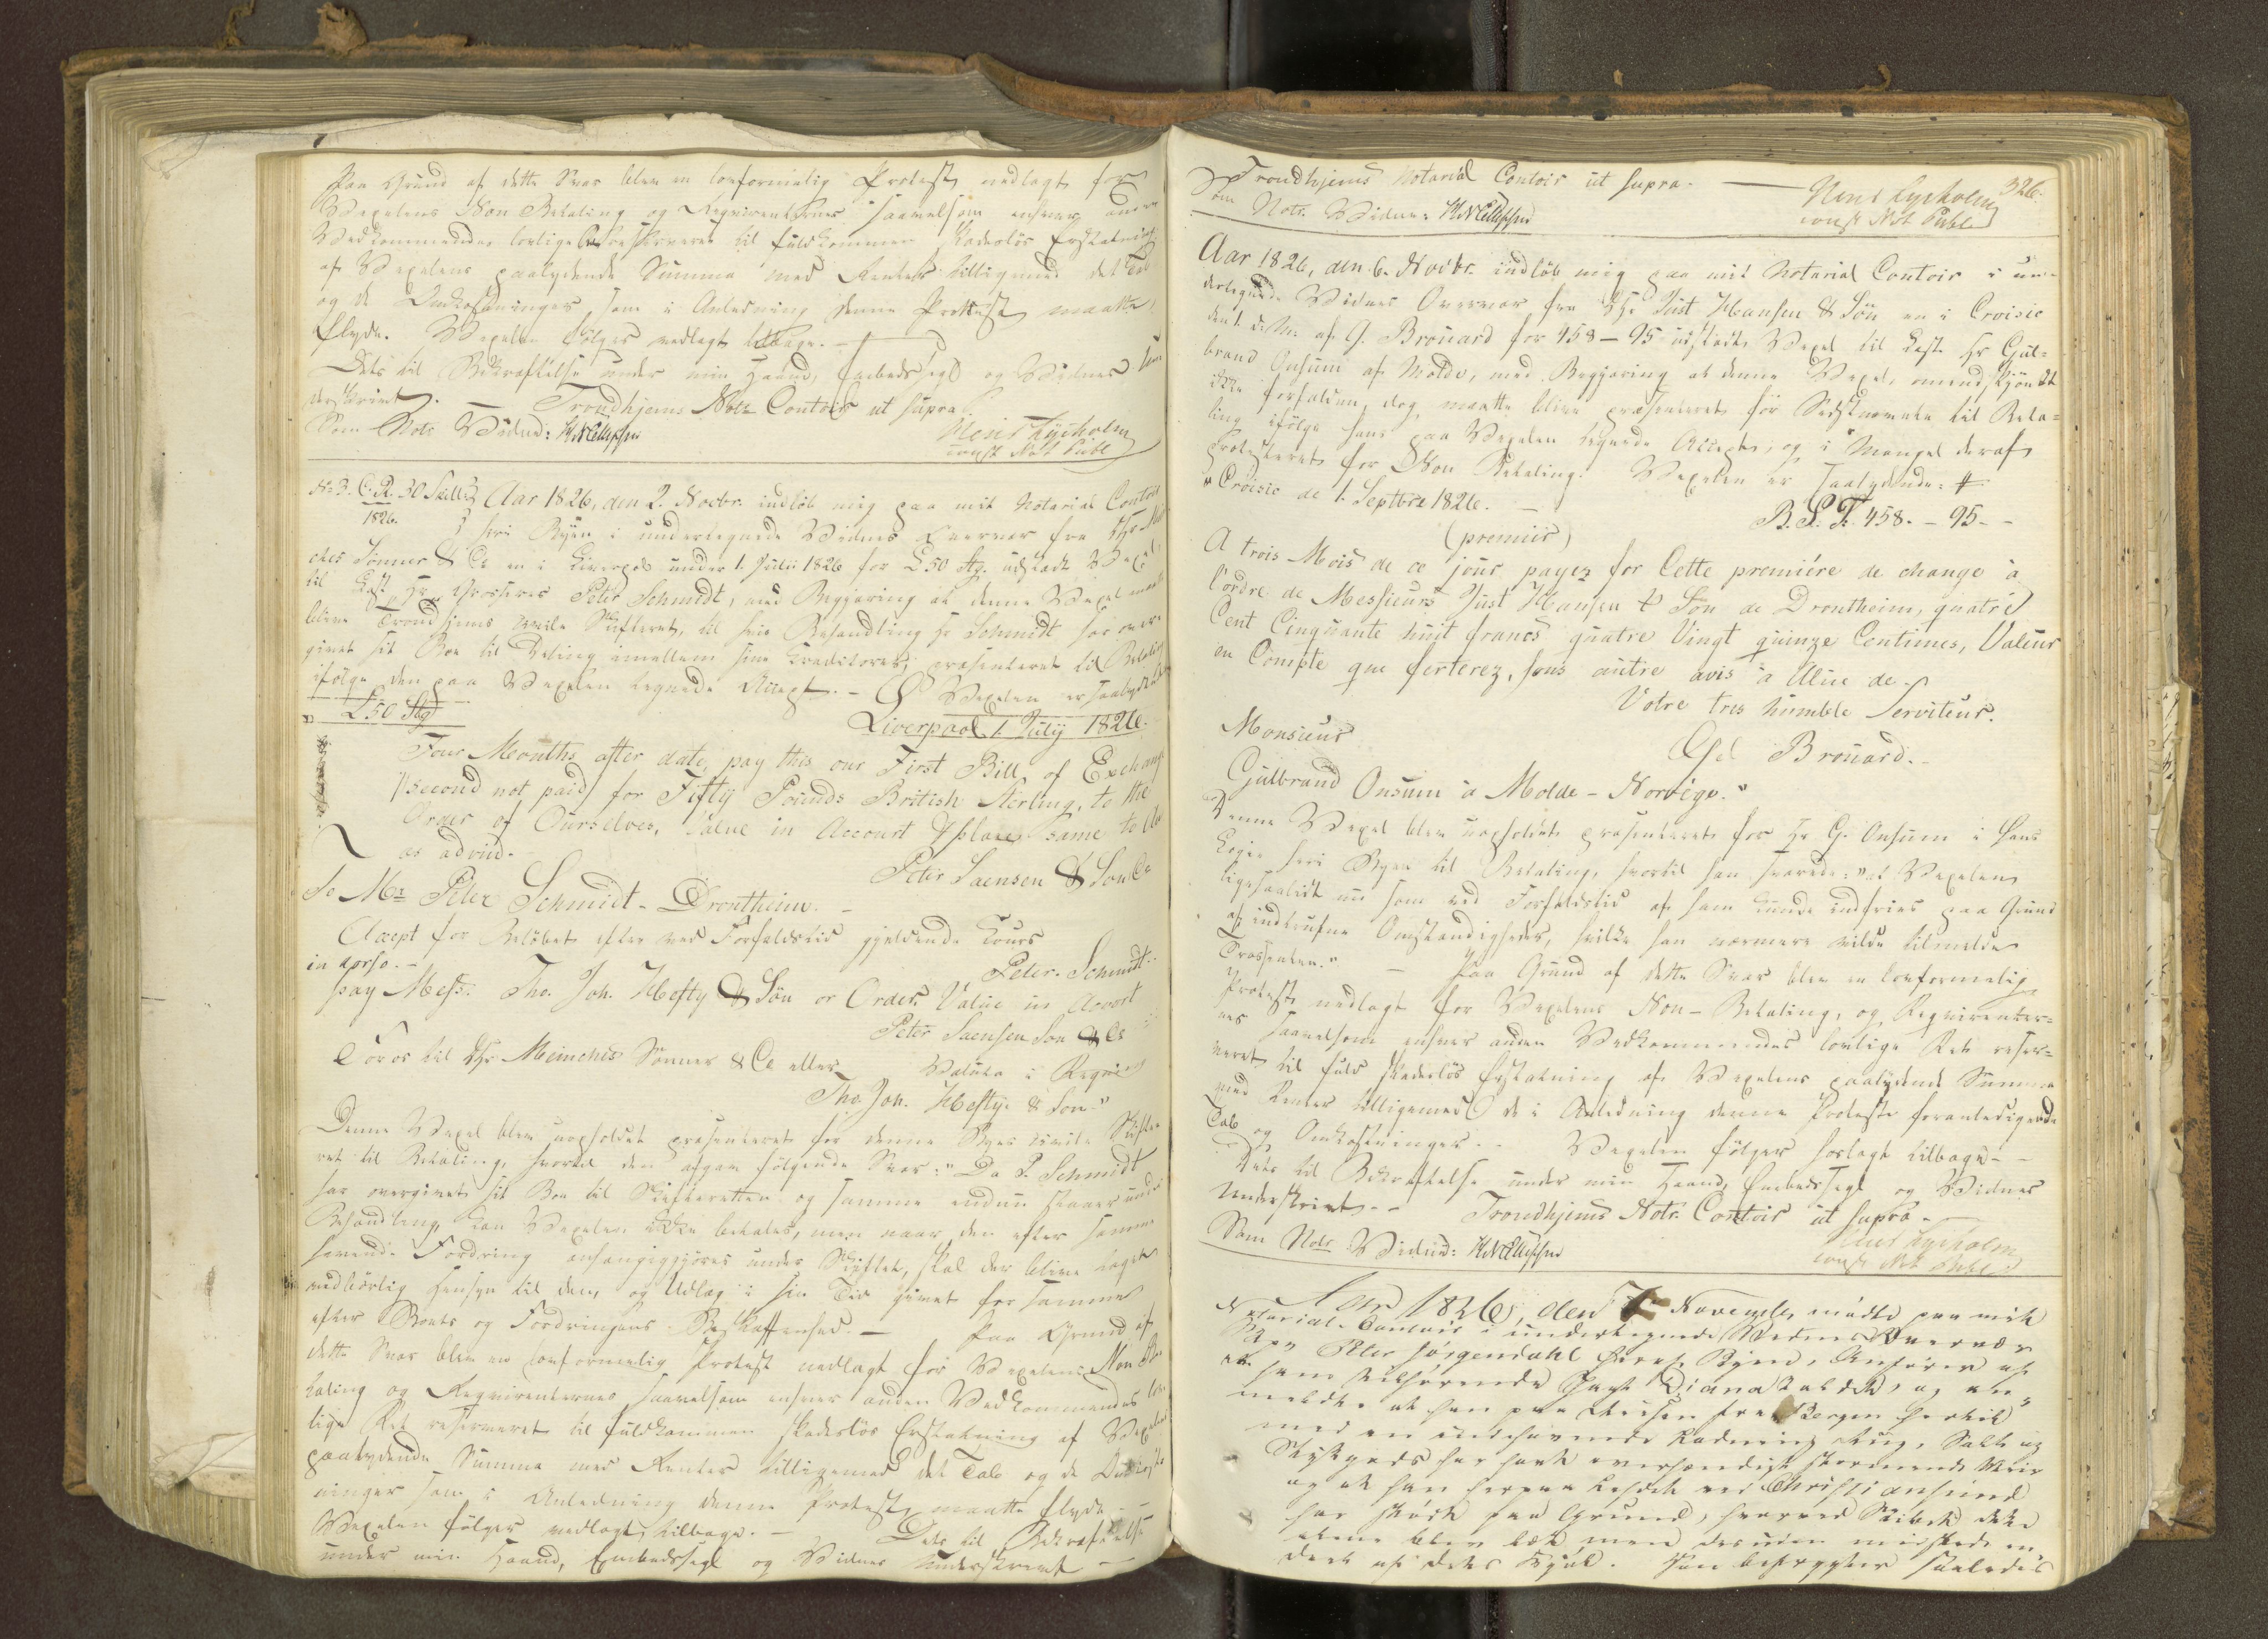 Paa Grund af dette Svar blev en conformelig Protest nedlagt for
Vexelens Non Betaling og Reqvirenternes saavelsom enhver anden
Vedkommendes lovlige Ret reserveret til fuldkommen skadeslös Erstatning
af Vexelens paalydende Summa med Renter tilligemed det Tab
og de Omkostninger som i Anledning denne Protest maatte
flyde. Vexelen fölger vedlagt tilbage. –
Dets til Bekræftelse under min Haand, Embedssegl og Vidnes Un
derskrivt. – Trondhjems Notr. Contoir ut supra.
Som Notr Vidne:
Lysholm
const Not Publ
No 3. C. R. 30 Skill: Aar 1826, den 2. Novbr. indlöb mig paa mit Notarial Contoir
1826. her i Byen i undertegnede Vidnes Overvær fra
ches Sönner & Co en i Liverpol under 1. Julii 1826 for £ 50 Stg. udstædt Vexel
til Hr Peter Schmidt, med Begjæring at denne Vexel maatte
blive Trondhjems civile Skifteret, til hvis Behandling Hr Schmidt har over-
givet sit Boe til Deling imellem sine Creditorer, præsenteret til Betaling
ifölge den paa Vexelen tegnede Accept. – Vexelen er saalydende
" £ 50 Stg Liverpool 1. July 1826.
Four Months after date, pay this our First Bill of Exchange
/second not paid/ for Fifty Pounds British Sterling, to the
Order of Ourselves, Value in Account & place same to do
as advid. –
Peter Saensen & Son Co
To Mr Peter Schmidt – Drontheim. –
Accept for Belöbet efter ved Forfaldstid gjeldende Cours
in dorso. – Peter. Schmidt.
pay Mess: Tho. Joh. Hefty & Sön or Order, Value in Accort
Peter Saensen Son & Co
For os til Hr Meinches Sönner & Co eller Valuta i Regning
Tho. Joh. Heftye & Son."
Denne Vexel blev uopholdet præsenteret for denne Byes civile Skifte
ret til Betaling, hvortil den afgav fölgende Svar: "Da P. Schmidt
har overgivet sit Boe til Skifteretten og samme endnu staaer under
Behandling kan Vexelen ikke betales, men naar den efter samme
havende Fordring anhængiggjöres under Skiftet, skal der blive taget
vedbörlig Hensyn til den, og Udlæg i sin Tid givet for samme
efter Boets og Fordringens Beskaffenhed. – Paa Grund af
dette Svar blev en conformelig Protest nedlagt for Vexelens Non Be
taling og Reqvirenternes saavelsom enhver anden Vedkommendes lov
lige Ret reserveret til fuldkommen skadeslös Erstatning af Vexelens
paalydende Summa med Renter tilligemed det Tab og de Omkost
ninger som i Anledning denne Protest maatte flyde. –
Vexelen fölger vedlagt tilbage. – Dets til Bekræftelse
under min Haand, Embedssegl og Vidnes Underskrivt –
326.
Trondhjems Notarial Contoir ut supra. – Lysholm
Som Notr. Vidne: const Not Publ
Aar 1826, den 6. Novbr. indlöb mig paa mit Notarial Contoir i un-
dertegnede Vidnes Overvær fra Hr. Just Hansen & Sön en i Croisic
den 1. d. M. af G. Brouard for 458 – 95 udstædt Vexel til Hr Gul=
brand Onsum af Molde, med Begjæring at denne Vexel, omendskjöndt
ikke forfalden, dog maatte blive præsenteret for til Beta=
ling ifölge hans paa Vexelen tegnede Accept, og i Mangel deraf
protesteret for Non Betaling. Vexelen er saalydende:
"Croisic de 1. Septbre 1826. – B. P. F. 458. – 95. –
(premiir)
A trois Mois de ce jour payez for Cette premiére de change à
l'ordre de Messieurs Just Hansen & Son de Drontheim, quatre
Cent Cinquante huit francs quatre Vingt quinze Centimes, Valeur
en Compte que serterez, sans autre avis à Aliue de
Votre tres humble Serviteur.
Monsieur Brouard. –
Gulbrand Onsum à Molde – Norvige."
Denne Vexel blev uopholdet præsenteret for Hr G. Onsum i hans
Logie her i Byen til Betaling, hvortil han svarede: "at Vexelen
ligesaalidt nu som ved Forfaldstid af ham kunde indfries paa Grund
af indtrufne Omstændigheder, hvilke han nærmere vilde tilmelde
Trassenten." – Paa Grund af dette Svar blev en conformelig
Protest nedlagt for Vexelens Non-Betaling, og Reqvirenter=
nes saavelsom enhver anden Vedkommendes lovlige Ret reser=
veret til fuld skadeslös Erstatning af Vexelens paalydende Summa
med Renter tilligemed de i Anledning denne Protest foranledigende
Tab og Omkostninger. – Vexelen fölger hoslagt tilbage. –
Dets til Bekræftelse under min Haand, Embedssegl og Vidnes
Underskrivt. – Trondhjems Notr. Contoir ut supra –
Som Notr Vidne: Lysholm
const Not Publ
Aar 1826, den 7. November, mödte paa mit
Notarial-Contoir i undertegnede Vidnes Overvær
Peter Jörgendahl Byen, Anförer af
ham tilhörende Jagt Diana kaldet, og an
meldte at han paa Reisen fra Bergen hertil
med en indehavende Ladning Rug, Salt og
Stykgods har havt overhændigt stormende Veir
og at han ved Christiansund
har stödt paa Grund, hvorved Skibet ikke
alene blev læk, men desuden mistede en
Deel af dets Kjöl. Han befrygter saaledes